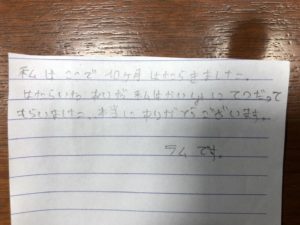 私はここで 10ヶ月 はたらきました。
はたらいて いるあいだ 私はかいしゃに てつだって
もらいました。本当に ありがとうございます。
ラム です。